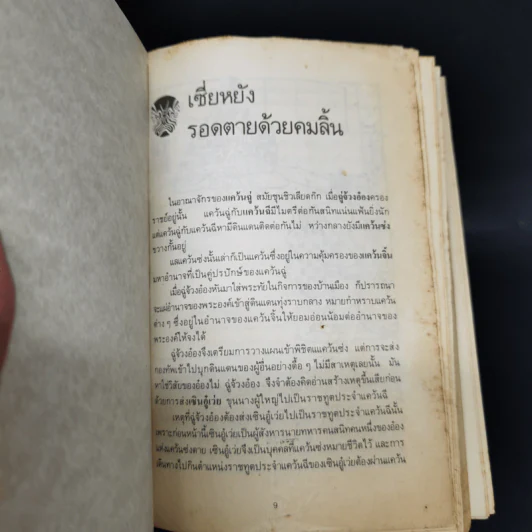 เซี่ยหยัง
รอดตายด้วยคมลิ้น
ในอาณาจักรของแคว้นฉู่ สมัยชุนชิวเลียดกัก เมื่อฉู่จ้วงอ๋องครอง
ราชย์อยู่นั้น แคว้นฉู่กับแคว้นฉีมีไมตรีต่อกันสนิทแน่นแฟ้นยิ่งนัก
แต่แคว้นฉู่กับแคว้นฉีหามีดินแดนติดต่อกันไม่ หว่างกลางยังมีแคว้นซ่ง
ขวางกั้นอยู่
แลแคว้นซ่งนั้นเล่าก็เป็นแคว้นซึ่งอยู่ในความคุ้มครองของแคว้นจิ้น
มหาอำนาจที่เป็นคู่ปรปักษ์ของแคว้นฉู่
เมื่อฉู่จ้วงอ๋องหันมาใส่พระทัยในกิจการของบ้านเมือง ก็ปรารถนา
จะแผ่อำนาจของพระองค์เข้าสู่ดินแดนทุ่งราบกลาง หมายกำหราบแคว้น
ต่าง ๆ ซึ่งอยู่ในอำนาจของแคว้นจิ้นให้ยอมอ่อนน้อมต่ออำนาจของ
พระองค์ให้จงได้
ฉู่จ้วงอ๋องจึงเตรียมการวางแผนเข้าพิชิตแแคว้นซ่ง แต่การจะส่ง
กองทัพเข้าไปบุกดินแดนของผู้อื่นอย่างดื้อ ๆ ไม่มีสาเหตุเลยนั้น มัน
หาใช่วิสัยของอ๋องไม่ ฉู่จ้วงอ๋อง จึงจำต้องคิดอ่านสร้างเหตุขึ้นเสียก่อน
ด้วยการส่งเซินอู๋เว่ย ขุนนางผู้ใหญ่ไปเป็นราชทูตประจำแคว้นฉี
เหตุที่ฉู่จ้วงอ๋องต้องส่งเซินอู๋เว่ยไปเป็นราชทูตประจำแคว้นฉีนั้น
เพราะก่อนหน้านี้เซินอู๋เว่ยเป็นผู้สังหารนายทหารคนสนิทคนหนึ่งของอ๋อง
แห่งแคว้นซ่งตาย เซินอู๋เว่ยจึงเป็นบุคคลที่แคว้นซ่งหมายชีวิตไว้ และการ
เดินทางไปกินตำแหน่งราชทูตประจำแคว้นฉีของเซินอู๋เว่ยต้องผ่านแคว้น
9